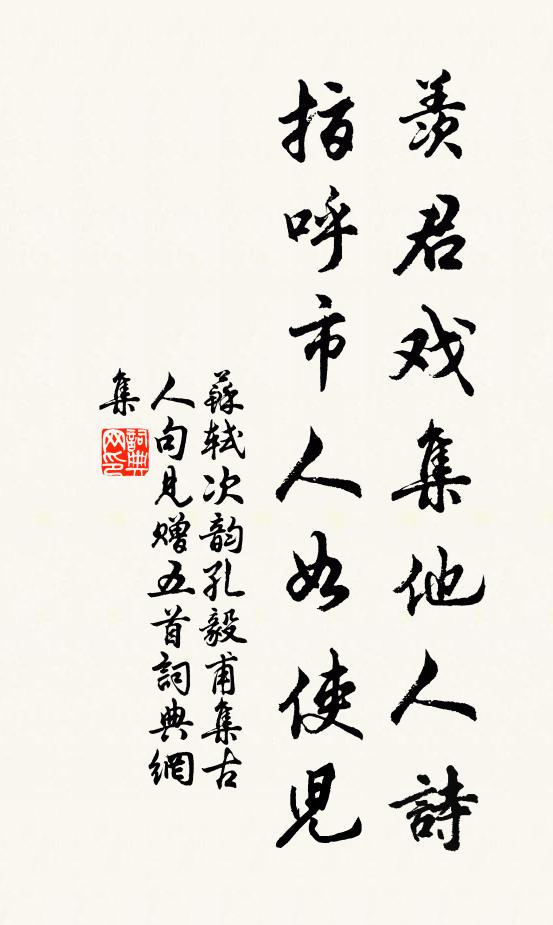 羨君戏集他人詩
指呼市人如使児
蘇轼次韵孔毅甫集古
人句見赠五首詞典網
集
詞典网印